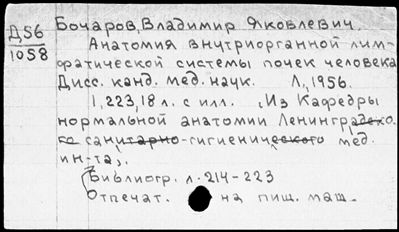 Д56
1058
Бочаров, Владимир Яковлевич.
Анатомия внутриорганной лим-
фатической системы почек человека
Дисс. канд. мед. наук. Л., 1956.
1, 223, 18 л. с илл. (Из Кафедры
нормальной анатомии Ленинградско.
го санитарно-гигиенического мед.
ин-та).
Библиогр. л. 214-223
Отпечат. на пиш. маш.